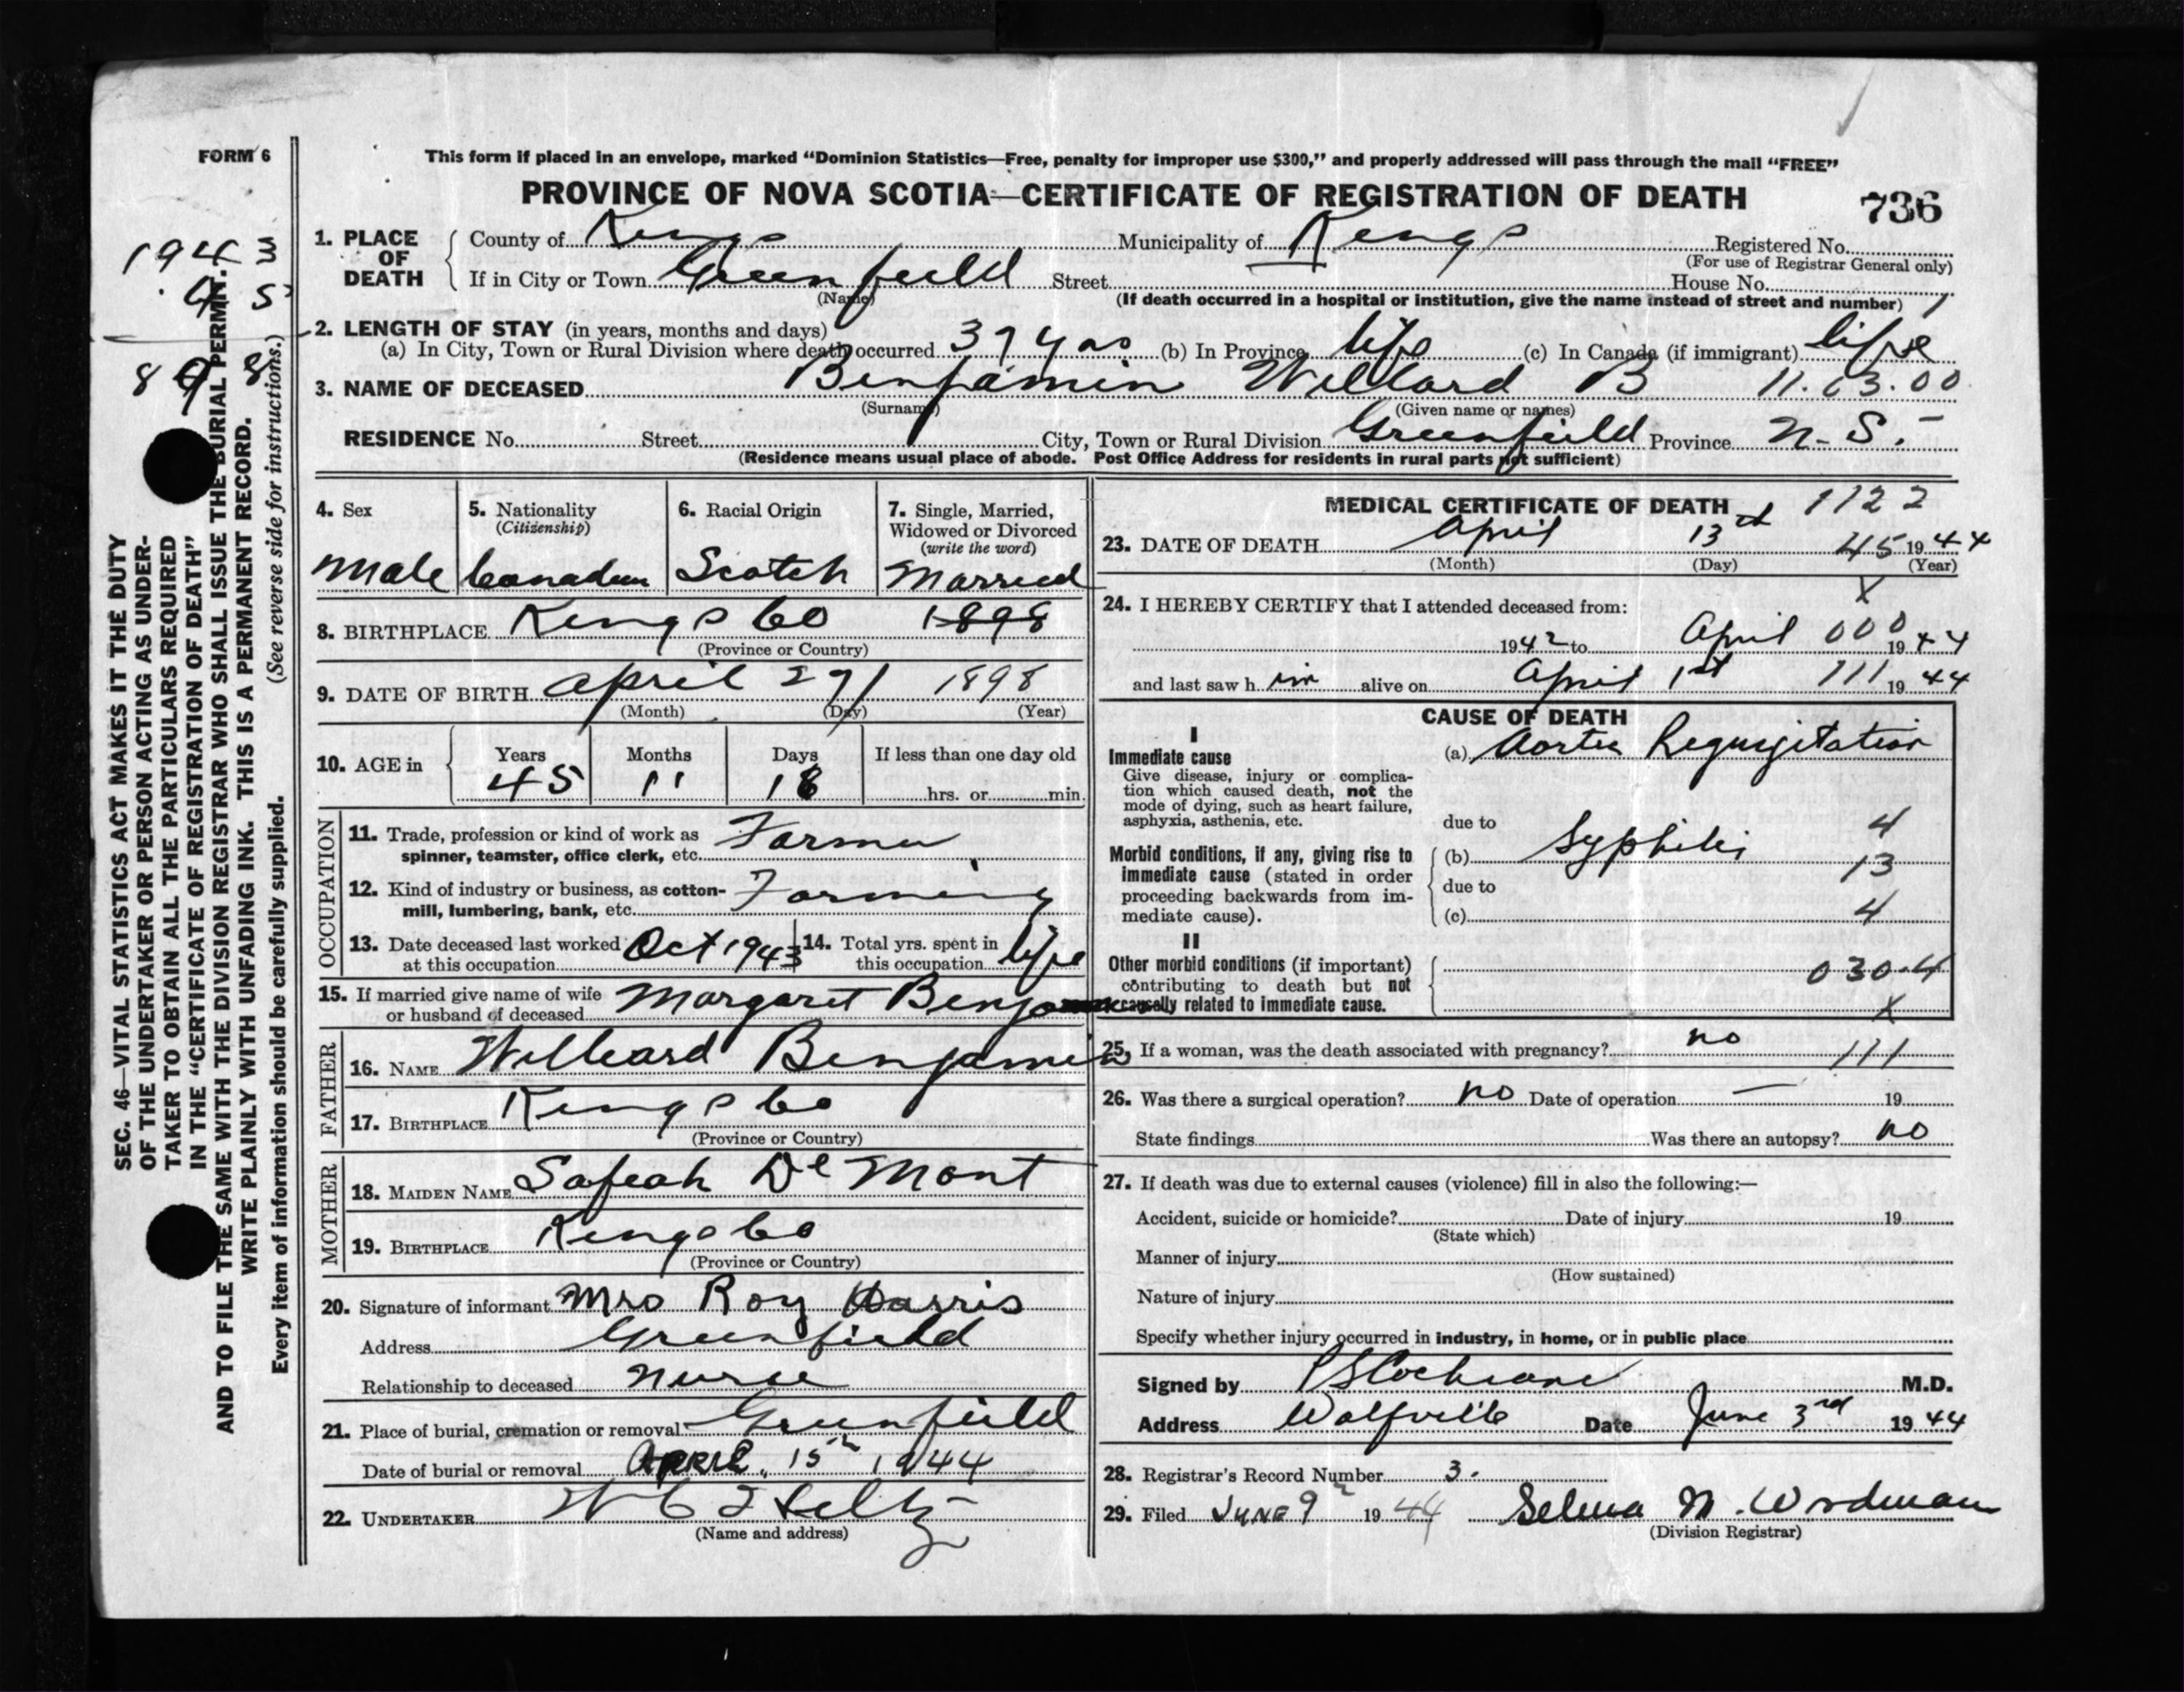 FORM 6
This form if placed in an envelope, marked "Dominion Statistics—Free, penalty for improper use $300," and properly addressed will pass through the mail "FREE"
PROVINCE OF NOVA SCOTIA—CERTIFICATE OF REGISTRATION OF DEATH 736
1943
45
898
SEC. 46—VITAL STATISTICS ACT MAKES IT THE DUTY
OF THE UNDERTAKER OR PERSON ACTING AS UNDER-
TAKER TO OBTAIN ALL THE PARTICULARS REQUIRED
IN THE "CERTIFICATE OF REGISTRATION OF DEATH"
AND TO FILE THE SAME WITH THE DIVISION REGISTRAR WHO SHALL ISSUE THE BURIAL PERMIT.
WRITE PLAINLY WITH UNFADING INK. THIS IS A PERMANENT RECORD.
Every item of information should be carefully supplied. (See reverse side for instructions.)
1. PLACE OF DEATH County of Kings Municipality of Kings Registered No.
(For use of Registrar General only)
If in City or Town Greenfield Street House No.
(Name) (If death occurred in a hospital or institution, give the name instead of street and number) 1
2. LENGTH OF STAY (in years, months and days)
(a) In City, Town or Rural Division where death occurred 37 yrs (b) In Province life (c) In Canada (if immigrant) life
3. NAME OF DECEASED Benjamin Willard B 11.03.00
(Surname) (Given name or names)
RESIDENCE No. Street City, Town or Rural Division Greenfield Province N.S.
(Residence means usual place of abode. Post Office Address for residents in rural parts not sufficient)
4. Sex 5. Nationality (Citizenship) 6. Racial Origin 7. Single, Married, Widowed or Divorced (write the word)
Male Canadian Scotch Married
8. BIRTHPLACE Kings Co 1898
(Province or Country)
9. DATE OF BIRTH April 27 1898
(Month) (Day) (Year)
10. AGE in Years Months Days If less than one day old
45 11 18 hrs. or min.
OCCUPATION
11. Trade, profession or kind of work as Farmer
spinner, teamster, office clerk, etc.
12. Kind of industry or business, as cotton- Farming
mill, lumbering, bank, etc.
13. Date deceased last worked at this occupation Oct 1943 14. Total yrs. spent in this occupation life
15. If married give name of wife or husband of deceased Margaret Benjamin
FATHER
16. NAME Willard Benjamin
17. BIRTHPLACE Kings Co
(Province or Country)
MOTHER
18. MAIDEN NAME De Mont
19. BIRTHPLACE Kings Co
(Province or Country)
20. Signature of informant Mrs Roy Harris
Address Greenfield
Relationship to deceased nurse
21. Place of burial, cremation or removal Greenfield
Date of burial or removal April 15 1944
22. UNDERTAKER
(Name and address)
MEDICAL CERTIFICATE OF DEATH 1122
23. DATE OF DEATH April 13 45 1944
(Month) (Day) (Year)
X
24. I HEREBY CERTIFY that I attended deceased from:
1942 to April 000 1944
and last saw him alive on April 1st 111 1944
CAUSE OF DEATH
I
Immediate cause (a) Aortic Regurgitation
Give disease, injury or complica-
tion which caused death, not the
mode of dying, such as heart failure,
asphyxia, asthenia, etc.
due to 4
Morbid conditions, if any, giving rise to (b) Syphilis 13
immediate cause (stated in order due to
proceeding backwards from im-
mediate cause). (c) 4
II
Other morbid conditions (if important) 030.4
contributing to death but not
causally related to immediate cause. X
25. If a woman, was the death associated with pregnancy? no 111
26. Was there a surgical operation? no Date of operation — 19
State findings Was there an autopsy? no
27. If death was due to external causes (violence) fill in also the following:—
Accident, suicide or homicide? Date of injury 19
(State which)
Manner of injury
(How sustained)
Nature of injury
Specify whether injury occurred in industry, in home, or in public place
Signed by Cochrane M.D.
Address Wolfville Date June 3rd 1944
28. Registrar's Record Number 3.
29. Filed JUNE 9 1944 Selma N. Wordman
(Division Registrar)